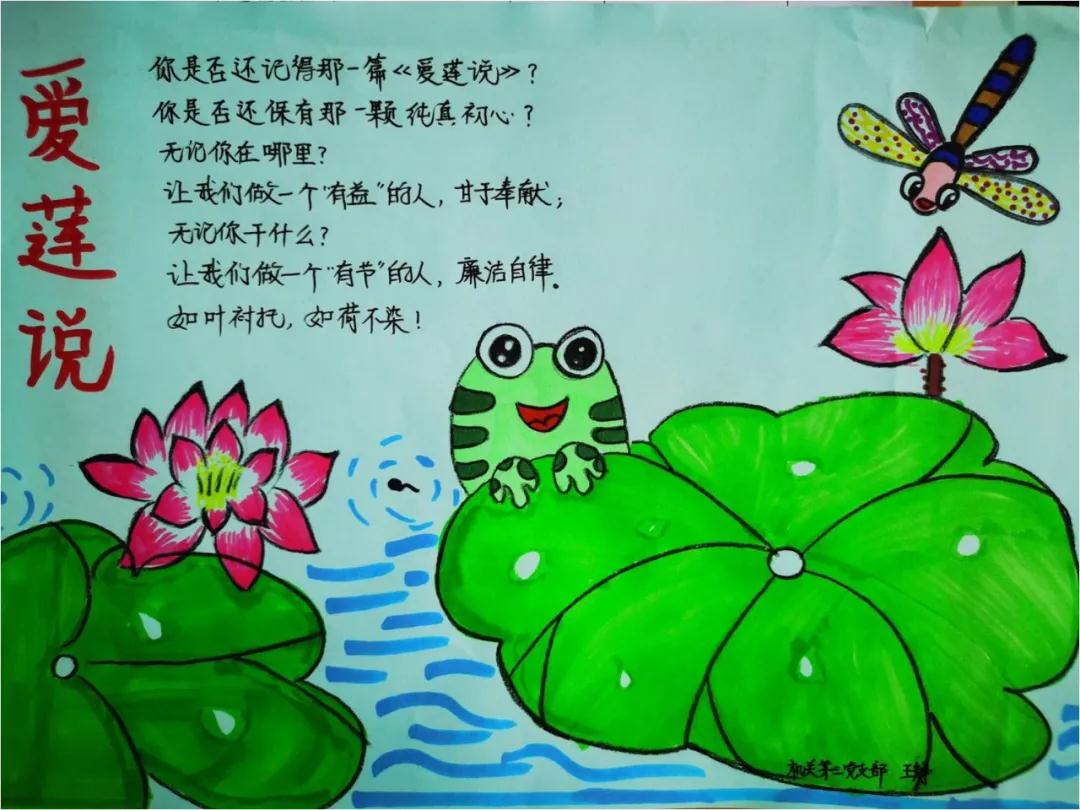 爱莲说
你是否还记得那一篇《爱莲说》？
你是否还保有那一颗纯真初心？
无记你在哪里？
让我们做一个“有益”的人，甘于奉献；
无记你干什么？
让我们做一个“有节”的人，廉洁自律。
如叶衬托，如荷不染！
机关第二党支部 王